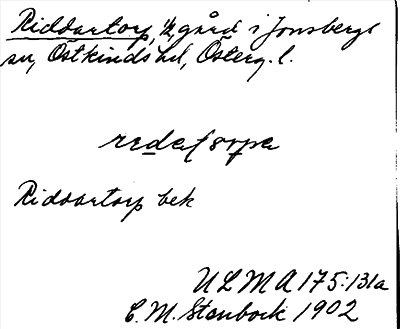 Riddartorp, ½ gård i Jonsbergs
sn, Östkinds hd, Österg. l.
Riddartorp bek
ULMA 175:131a
C. M. Stenbock 1902